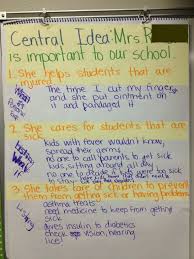 Central Idea: Mrs. R
is important to our school.
1. She helps students that are
injured.
The time I cut my finger
and she put ointment on
it and bandaged it
2. She cares for students that are
sick.
kids with fever wouldn't know,
spread their germs
no one to call parents to get sick
kids, sitting around all day
no one to decide if kids were too sick
to stay
3. She takes care of children to prevent
them from getting sick or having problems
need medicine to keep from getting
sick
gives insulin to diabetics
check vision, hearing
lice!